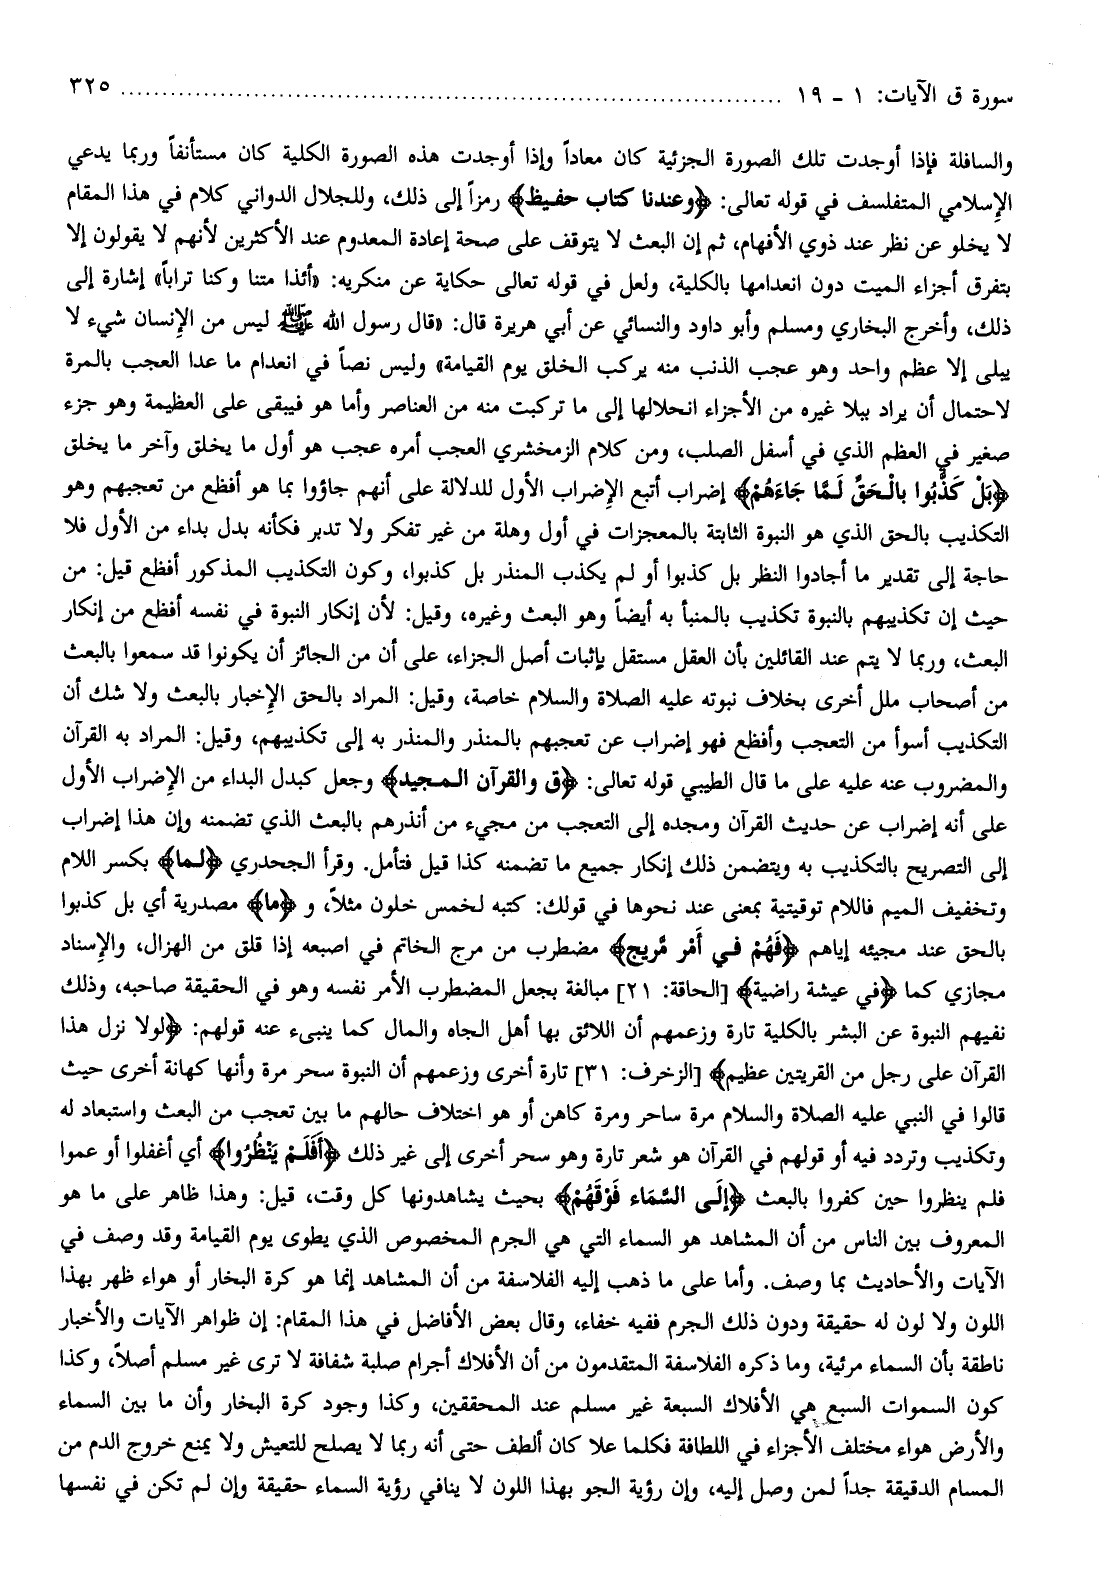 سورة ق الآيات: ١ - ١٩ ................................................................................ ٣٢٥
والسافلة فإذا أوجدت تلك الصورة الجزئية كان معاداً وإذا أوجدت هذه الصورة الكلية كان مستأنفاً وربما يدعي
الإسلامي المتفلسف في قوله تعالى: ﴿وعندنا كتاب حفيظ﴾ رمزاً إلى ذلك، وللجلال الدواني كلام في هذا المقام
لا يخلو عن نظر عند ذوي الأفهام، ثم إن البعث لا يتوقف على صحة إعادة المعدوم عند الأكثرين لأنهم لا يقولون إلا
بتفرق أجزاء الميت دون انعدامها بالكلية، ولعل في قوله تعالى حكاية عن منكريه: «أئذا متنا وكنا تراباً» إشارة إلى
ذلك، وأخرج البخاري ومسلم وأبو داود والنسائي عن أبي هريرة قال: «قال رسول الله ﷺ ليس من الإنسان شيء لا
يبلى إلا عظم واحد وهو عجب الذنب منه يركب الخلق يوم القيامة» وليس نصاً في انعدام ما عدا العجب بالمرة
لاحتمال أن يراد ببلا غيره من الأجزاء انحلالها إلى ما تركبت منه من العناصر وأما هو فيبقى على العظيمة وهو جزء
صغير في العظم الذي في أسفل الصلب، ومن كلام الزمخشري العجب أمره عجب هو أول ما يخلق وآخر ما يخلق
﴿بَلْ كَذَّبُوا بالْحَقِّ لَمَّا جَاءَهُمْ﴾ إضراب أتبع الإضراب الأول للدلالة على أنهم جاؤوا بما هو أفظع من تعجبهم وهو
التكذيب بالحق الذي هو النبوة الثابتة بالمعجزات في أول وهلة من غير تفكر ولا تدبر فكأنه بدل بداء من الأول فلا
حاجة إلى تقدير ما أجادوا النظر بل كذبوا أو لم يكذب المنذر بل كذبوا، وكون التكذيب المذكور أفظع قيل: من
حيث إن تكذيبهم بالنبوة تكذيب بالمنبأ به أيضاً وهو البعث وغيره، وقيل: لأن إنكار النبوة في نفسه أفظع من إنكار
البعث، وربما لا يتم عند القائلين بأن العقل مستقل بإثبات أصل الجزاء، على أن من الجائز أن يكونوا قد سمعوا بالبعث
من أصحاب ملل أخرى بخلاف نبوته عليه الصلاة والسلام خاصة، وقيل: المراد بالحق الإخبار بالبعث ولا شك أن
التكذيب أسوأ من التعجب وأفظع فهو إضراب عن تعجبهم بالمنذر والمنذر به إلى تكذيبهم، وقيل: المراد به القرآن
والمضروب عنه عليه على ما قال الطيبي قوله تعالى: ﴿ق والقرآن المجيد﴾ وجعل كبدل البداء من الإضراب الأول
على أنه إضراب عن حديث القرآن ومجده إلى التعجب من مجيء من أنذرهم بالبعث الذي تضمنه وإن هذا إضراب
إلى التصريح بالتكذيب به ويتضمن ذلك إنكار جميع ما تضمنه كذا قيل فتأمل. وقرأ الجحدري ﴿لما﴾ بكسر اللام
وتخفيف الميم فاللام توقيتية بمعنى عند نحوها في قولك: كتبه لخمس خلون مثلاً، و ﴿ما﴾ مصدرية أي بل كذبوا
بالحق عند مجيئه إياهم ﴿فَهُمْ في أَمْر مَّريج﴾ مضطرب من مرج الخاتم في اصبعه إذا قلق من الهزال، والإسناد
مجازي كما ﴿في عيشة راضية﴾ [الحاقة: ٢١] مبالغة بجعل المضطرب الأمر نفسه وهو في الحقيقة صاحبه، وذلك
نفيهم النبوة عن البشر بالكلية تارة وزعمهم أن اللائق بها أهل الجاه والمال كما ينبىء عنه قولهم: ﴿لولا نزل هذا
القرآن على رجل من القريتين عظيم﴾ [الزخرف: ٣١] تارة أخرى وزعمهم أن النبوة سحر مرة وأنها كهانة أخرى حيث
قالوا في النبي عليه الصلاة والسلام مرة ساحر ومرة كاهن أو هو اختلاف حالهم ما بين تعجب من البعث واستبعاد له
وتكذيب وتردد فيه أو قولهم في القرآن هو شعر تارة وهو سحر أخرى إلى غير ذلك ﴿أَفَلَمْ يَنْظُرُوا﴾ أي أغفلوا أو عموا
فلم ينظروا حين كفروا بالبعث ﴿إلَى السَّمَاء فَوْقَهُمْ﴾ بحيث يشاهدونها كل وقت، قيل: وهذا ظاهر على ما هو
المعروف بين الناس من أن المشاهد هو السماء التي هي الجرم المخصوص الذي يطوى يوم القيامة وقد وصف في
الآيات والأحاديث بما وصف. وأما على ما ذهب إليه الفلاسفة من أن المشاهد إنما هو كرة البخار أو هواء ظهر بهذا
اللون ولا لون له حقيقة ودون ذلك الجرم ففيه خفاء، وقال بعض الأفاضل في هذا المقام: إن ظواهر الآيات والأخبار
ناطقة بأن السماء مرئية، وما ذكره الفلاسفة المتقدمون من أن الأفلاك أجرام صلبة شفافة لا ترى غير مسلم أصلاً، وكذا
كون السموات السبع هي الأفلاك السبعة غير مسلم عند المحققين، وكذا وجود كرة البخار وأن ما بين السماء
والأرض هواء مختلف الأجزاء في اللطافة فكلما علا كان ألطف حتى أنه ربما لا يصلح للتعيش ولا يمنع خروج الدم من
المسام الدقيقة جداً لمن وصل إليه، وإن رؤية الجو بهذا اللون لا ينافي رؤية السماء حقيقة وإن لم تكن في نفسها